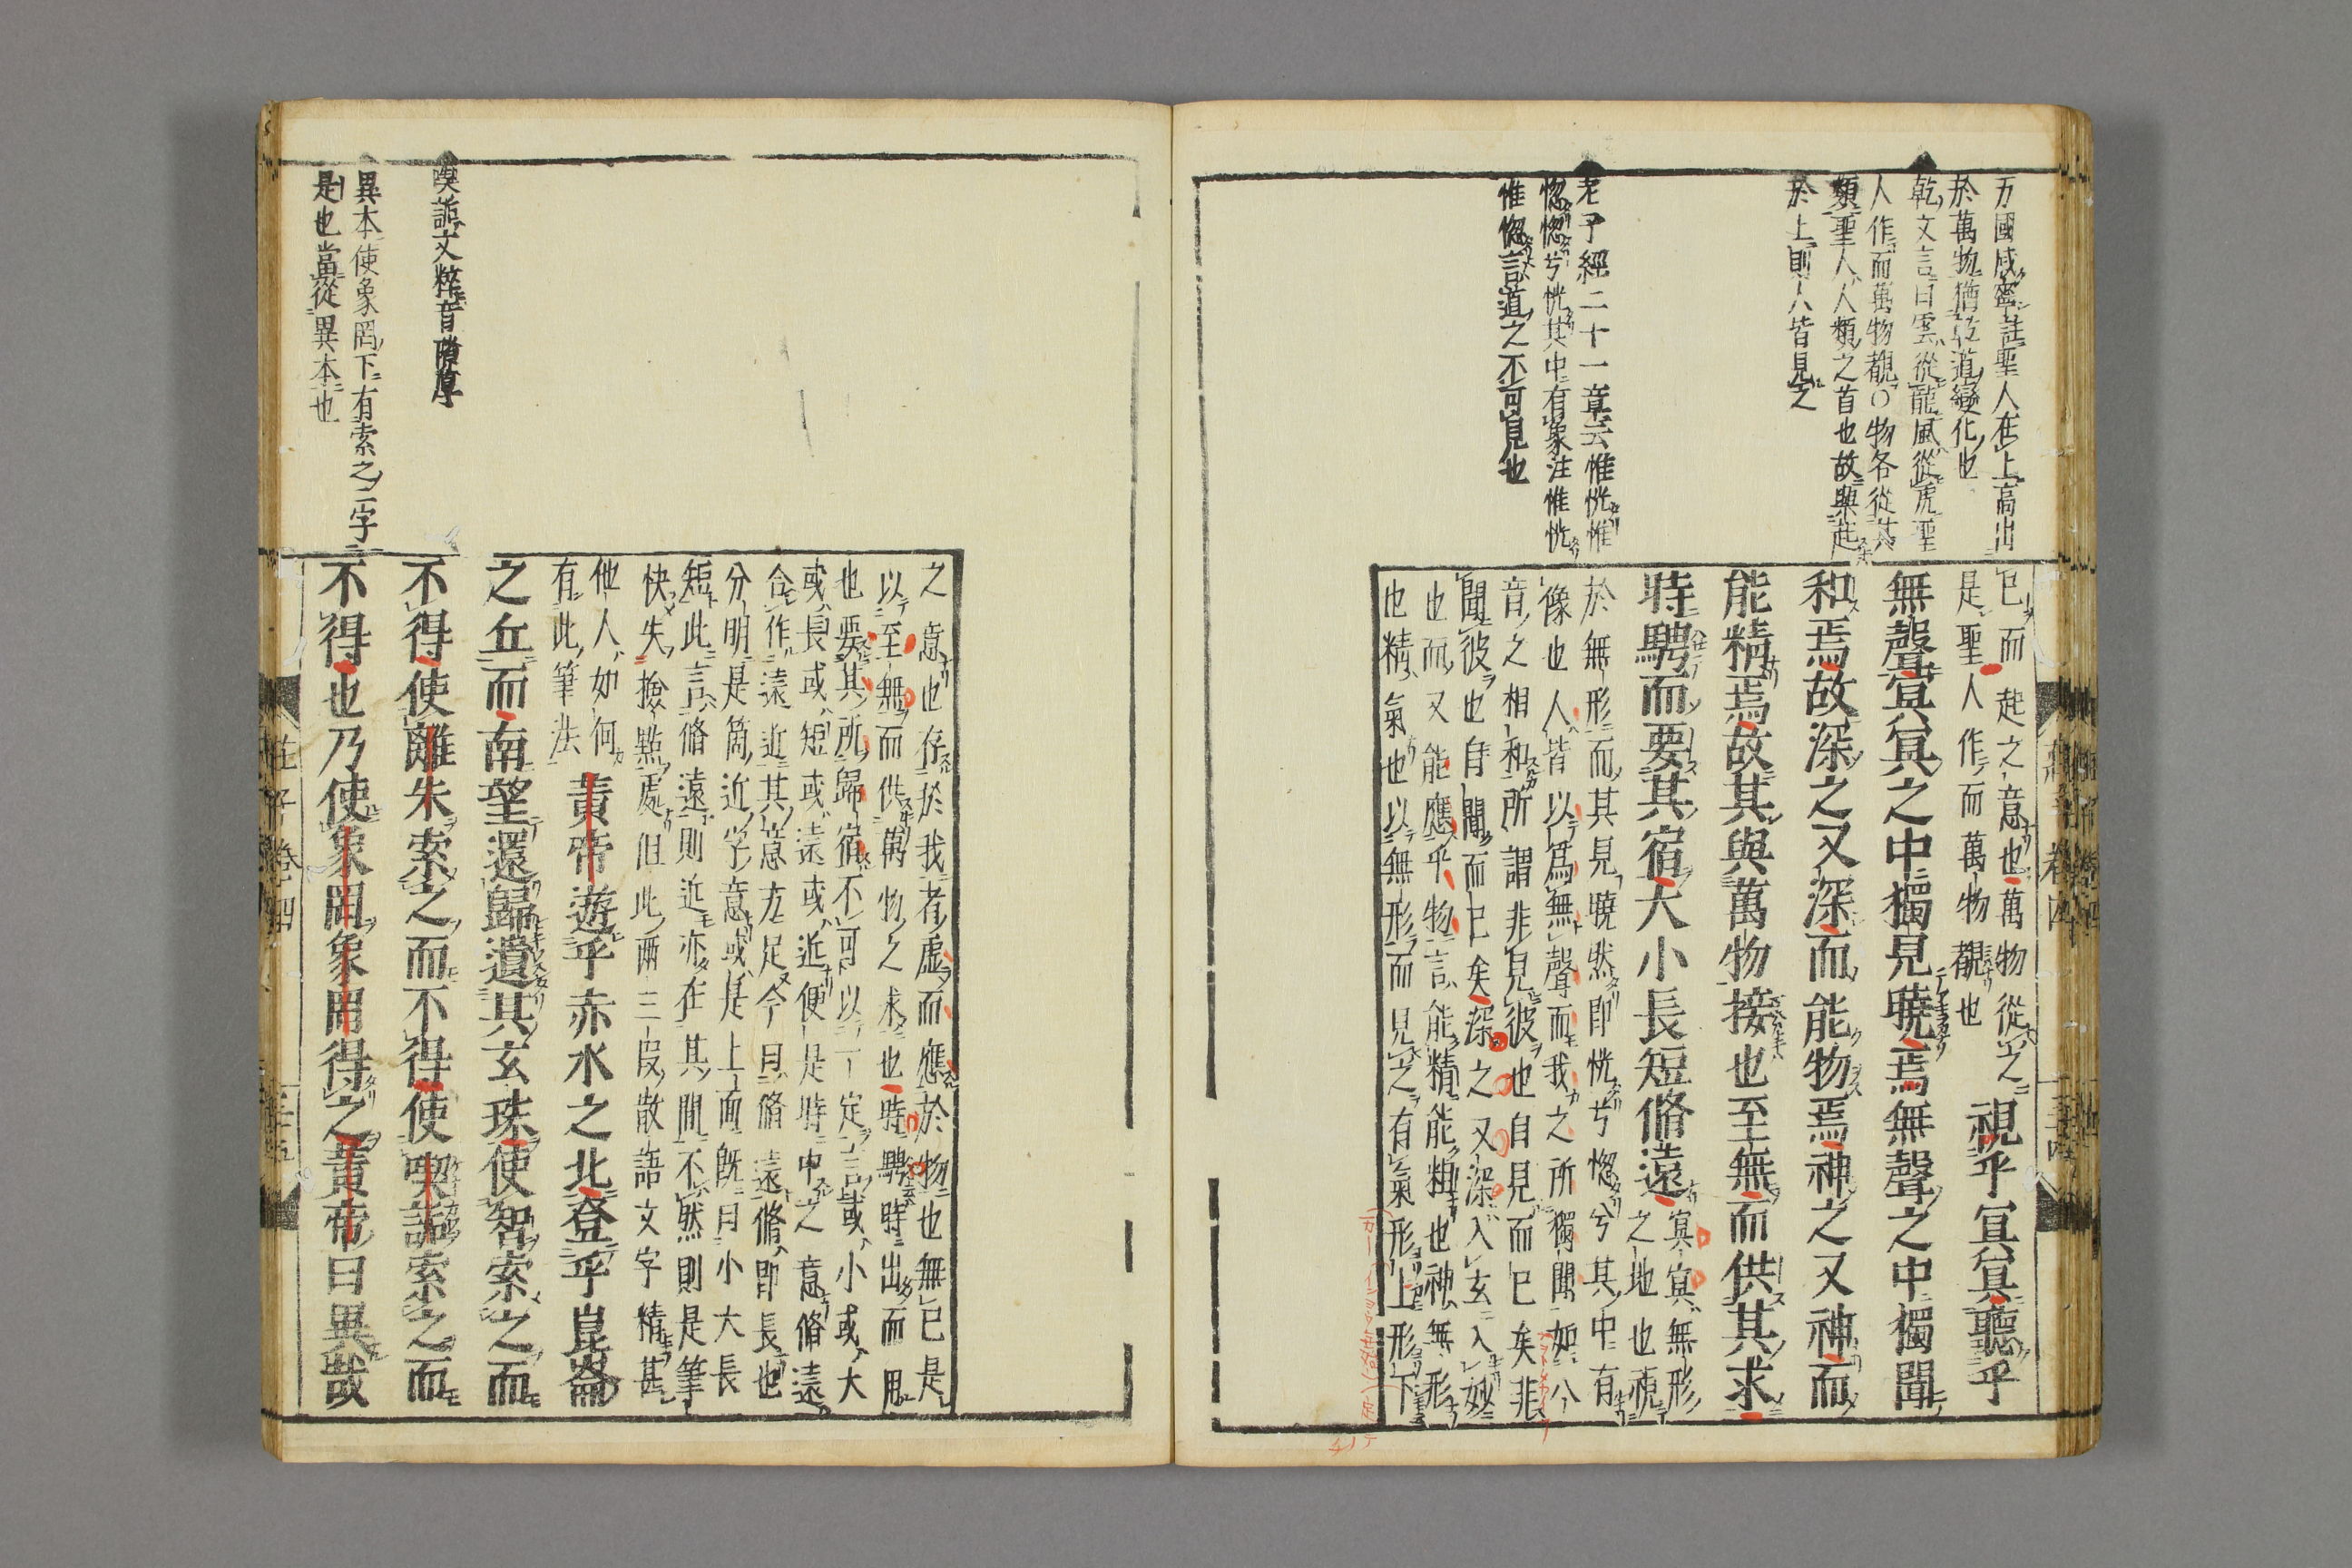 万國咸寧註聖人在上高出
於萬物猶乾道變化也
乾文言曰雲從龍風從虎聖
人作而萬物覩○物各從其
類聖人人類之首也故興起
於上則人皆見之
老子經二十一章云惟恍惟
惚惚兮恍其中有象注惟恍
惟惚言道之不可見也
已而起之意也萬物從之
是聖人作而萬物覩也
視乎冥冥聽乎
無聲冥冥之中獨見曉焉無聲之中獨聞
和焉故深之又深而能物焉神之又神而
能精焉故其與萬物接也至無而供其求
時騁而要其宿大小長短脩遠
冥冥無形
之地也視
於無形而其見曉然即恍兮惚兮其中有
像也人皆以爲無聲而我之所獨聞如八
音之相和所謂非見彼也自見而已矣非
聞彼也自聞而已矣深之又深入玄入妙
也而又能應乎物言能精能粗也神無形
也精氣也以無形而見之有氣形上形下
之意也存於我者虛而應於物也無已是
以至無而供萬物之求也時騁時出而用
也要其所歸宿不可以一定言或小或大
或長或短或遠或近便是時中之意脩遠
合作遠近其意方足今曰脩遠脩即長也
分明是箇近字意或是上面既曰小大長
短此言脩遠則近亦在其間不然則是筆
快失撿點處但此兩三段散語文字精甚
他人如何
有此筆法
黃帝遊乎赤水之北登乎崑崙
之丘而南望還歸遺其玄珠使智索之而
不得使離朱索之而不得使喫詬索之而
不得也乃使象罔象罔得之黃帝曰異哉
喫詬文粹音
異本使象罔下有索之二字
是也當從異本也
莊子卷四
三十五